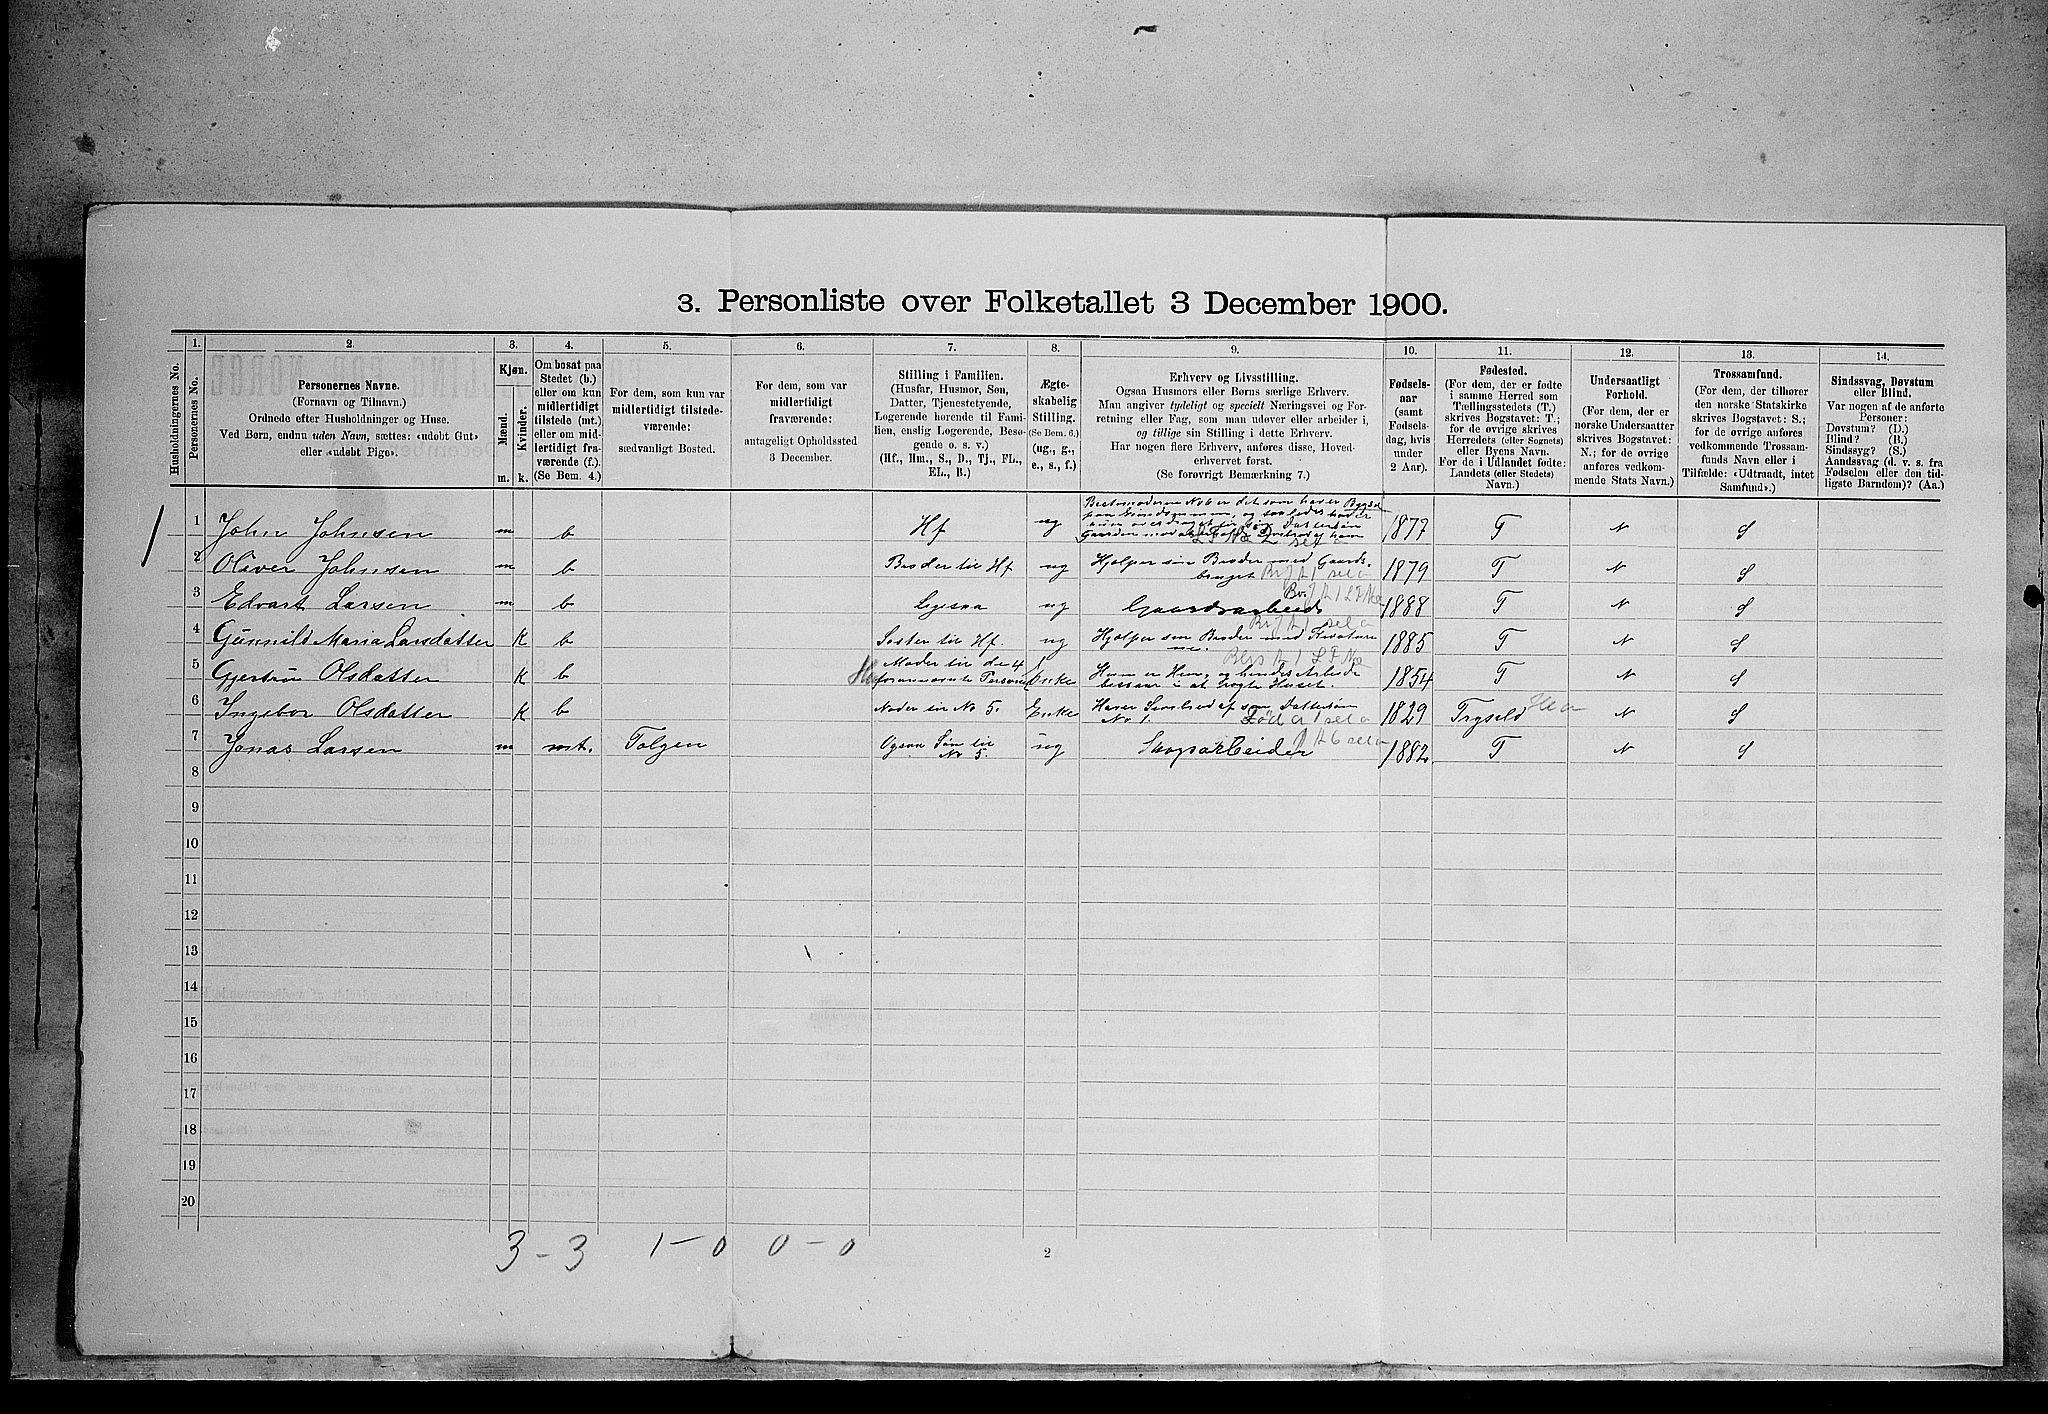 3. Personliste over Folketallet 3 December 1900.
Husholdningernes No.
1. Personernes No.
2.
Personernes Navne.
(Fornavn og Tilnavn.)
Ordnede efter Husholdninger og Huse.
Ved Børn, endnu uden Navn, sættes: «udøbt Gut»
eller «udøbt Pige».
3.
Kjøn.
Mænd.
Kvinder.
m. k.
4.
Om bosat paa
Stedet (b.)
eller om kun
midlertidigt
tilstede (mt.)
eller om mid-
lertidigt fra-
værende (f.).
(Se Bem. 4.)
5.
For dem, som kun var
midlertidigt tilstede-
værende:
sædvanligt Bosted.
6.
For dem, som var
midlertidigt
fraværende:
antageligt Opholdssted
3 December.
7.
Stilling i Familien.
(Husfar, Husmor, Søn,
Datter, Tjenestetyende,
Logerende hørende til Fami-
lien, enslig Logerende, Besø-
gende o. s. v.)
(Hf., Hm., S., D., Tj., FL.,
EL., B.)
8.
Ægte-
skabelig
Stilling.
(Se Bem. 6.)
(ug., g.,
e., s., f.)
9.
Erhverv og Livsstilling.
Ogsaa Husmors eller Børns særlige Erhverv.
Man angiver tydeligt og specielt Næringsvei og For-
retning eller Fag, som man udøver eller arbeider i,
og tillige sin Stilling i dette Erhverv.
Har nogen flere Erhverv, anføres disse, Hoved-
erhvervet først.
(Se forøvrigt Bemærkning 7.)
10.
Fødsels-
aar
(samt
Fødsels-
dag, hvis
under
2 Aar).
11.
Fødested.
(For dem, der er fødte
i samme Herred som
Tællingsstedets (T.)
skrives Bogstavet: T.;
for de øvrige skrives
Herredets (eller Sognets)
eller Byens Navn.
For de i Udlandet fødte:
Landets (eller Stedets)
Navn.)
12.
Undersaatligt
Forhold.
(For dem, der er
norske Undersaatter
skrives Bogstavet:
N.; for de øvrige
anføres vedkom-
mende Stats Navn.)
13.
Trossamfund.
(For dem, der tilhører
den norske Statskirke
skrives Bogstavet: S.;
for de øvrige anføres
vedkommende Trossam-
funds Navn eller i
Tilfælde: «Udtraadt, intet
Samfund».)
14.
Sindssvag, Døvstum
eller Blind.
Var nogen af de anførte
Personer:
Døvstum? (D.)
Blind? (B.)
Sindssyg? (S.)
Aandssvag (d. v. s. fra
Fødselen eller den tid-
ligste Barndom)? (Aa.)
1 John Johnsen m b Hf ug 1877 T N S
2 Oliver Johnsen m b Broder til Hf ug Hjælper sin Broder med Gaards- 1879 T N S
bruget
3 Edvart Larsen m b Ligesaa ug Gaardsarbeide 1888 T N S
4 Gunnild Maria Larsdatter K b Søster til Hf. ug Hjælper sin Broder med Kreature 1885 T N S
ne.
5 Gjertrø Olsdatter K b Moder til de 4 Enke Hun er Hm, og hendes Arbeide 1854 T N S
forannævnte Personer bestaar i at røgte Huset.
6 Ingebor Olsdatter K b Moder til No 5. Enke 1829 Trysild N S
No 1.
7 Jonas Larsen m mt. Tolgen Ogsaa Søn til ug Saugarbeider 1882 T N S
No 5.
8
9
10
11
12
13
14
15
16
17
18
19
20
3 - 3 1 - 0 0 - 0
2